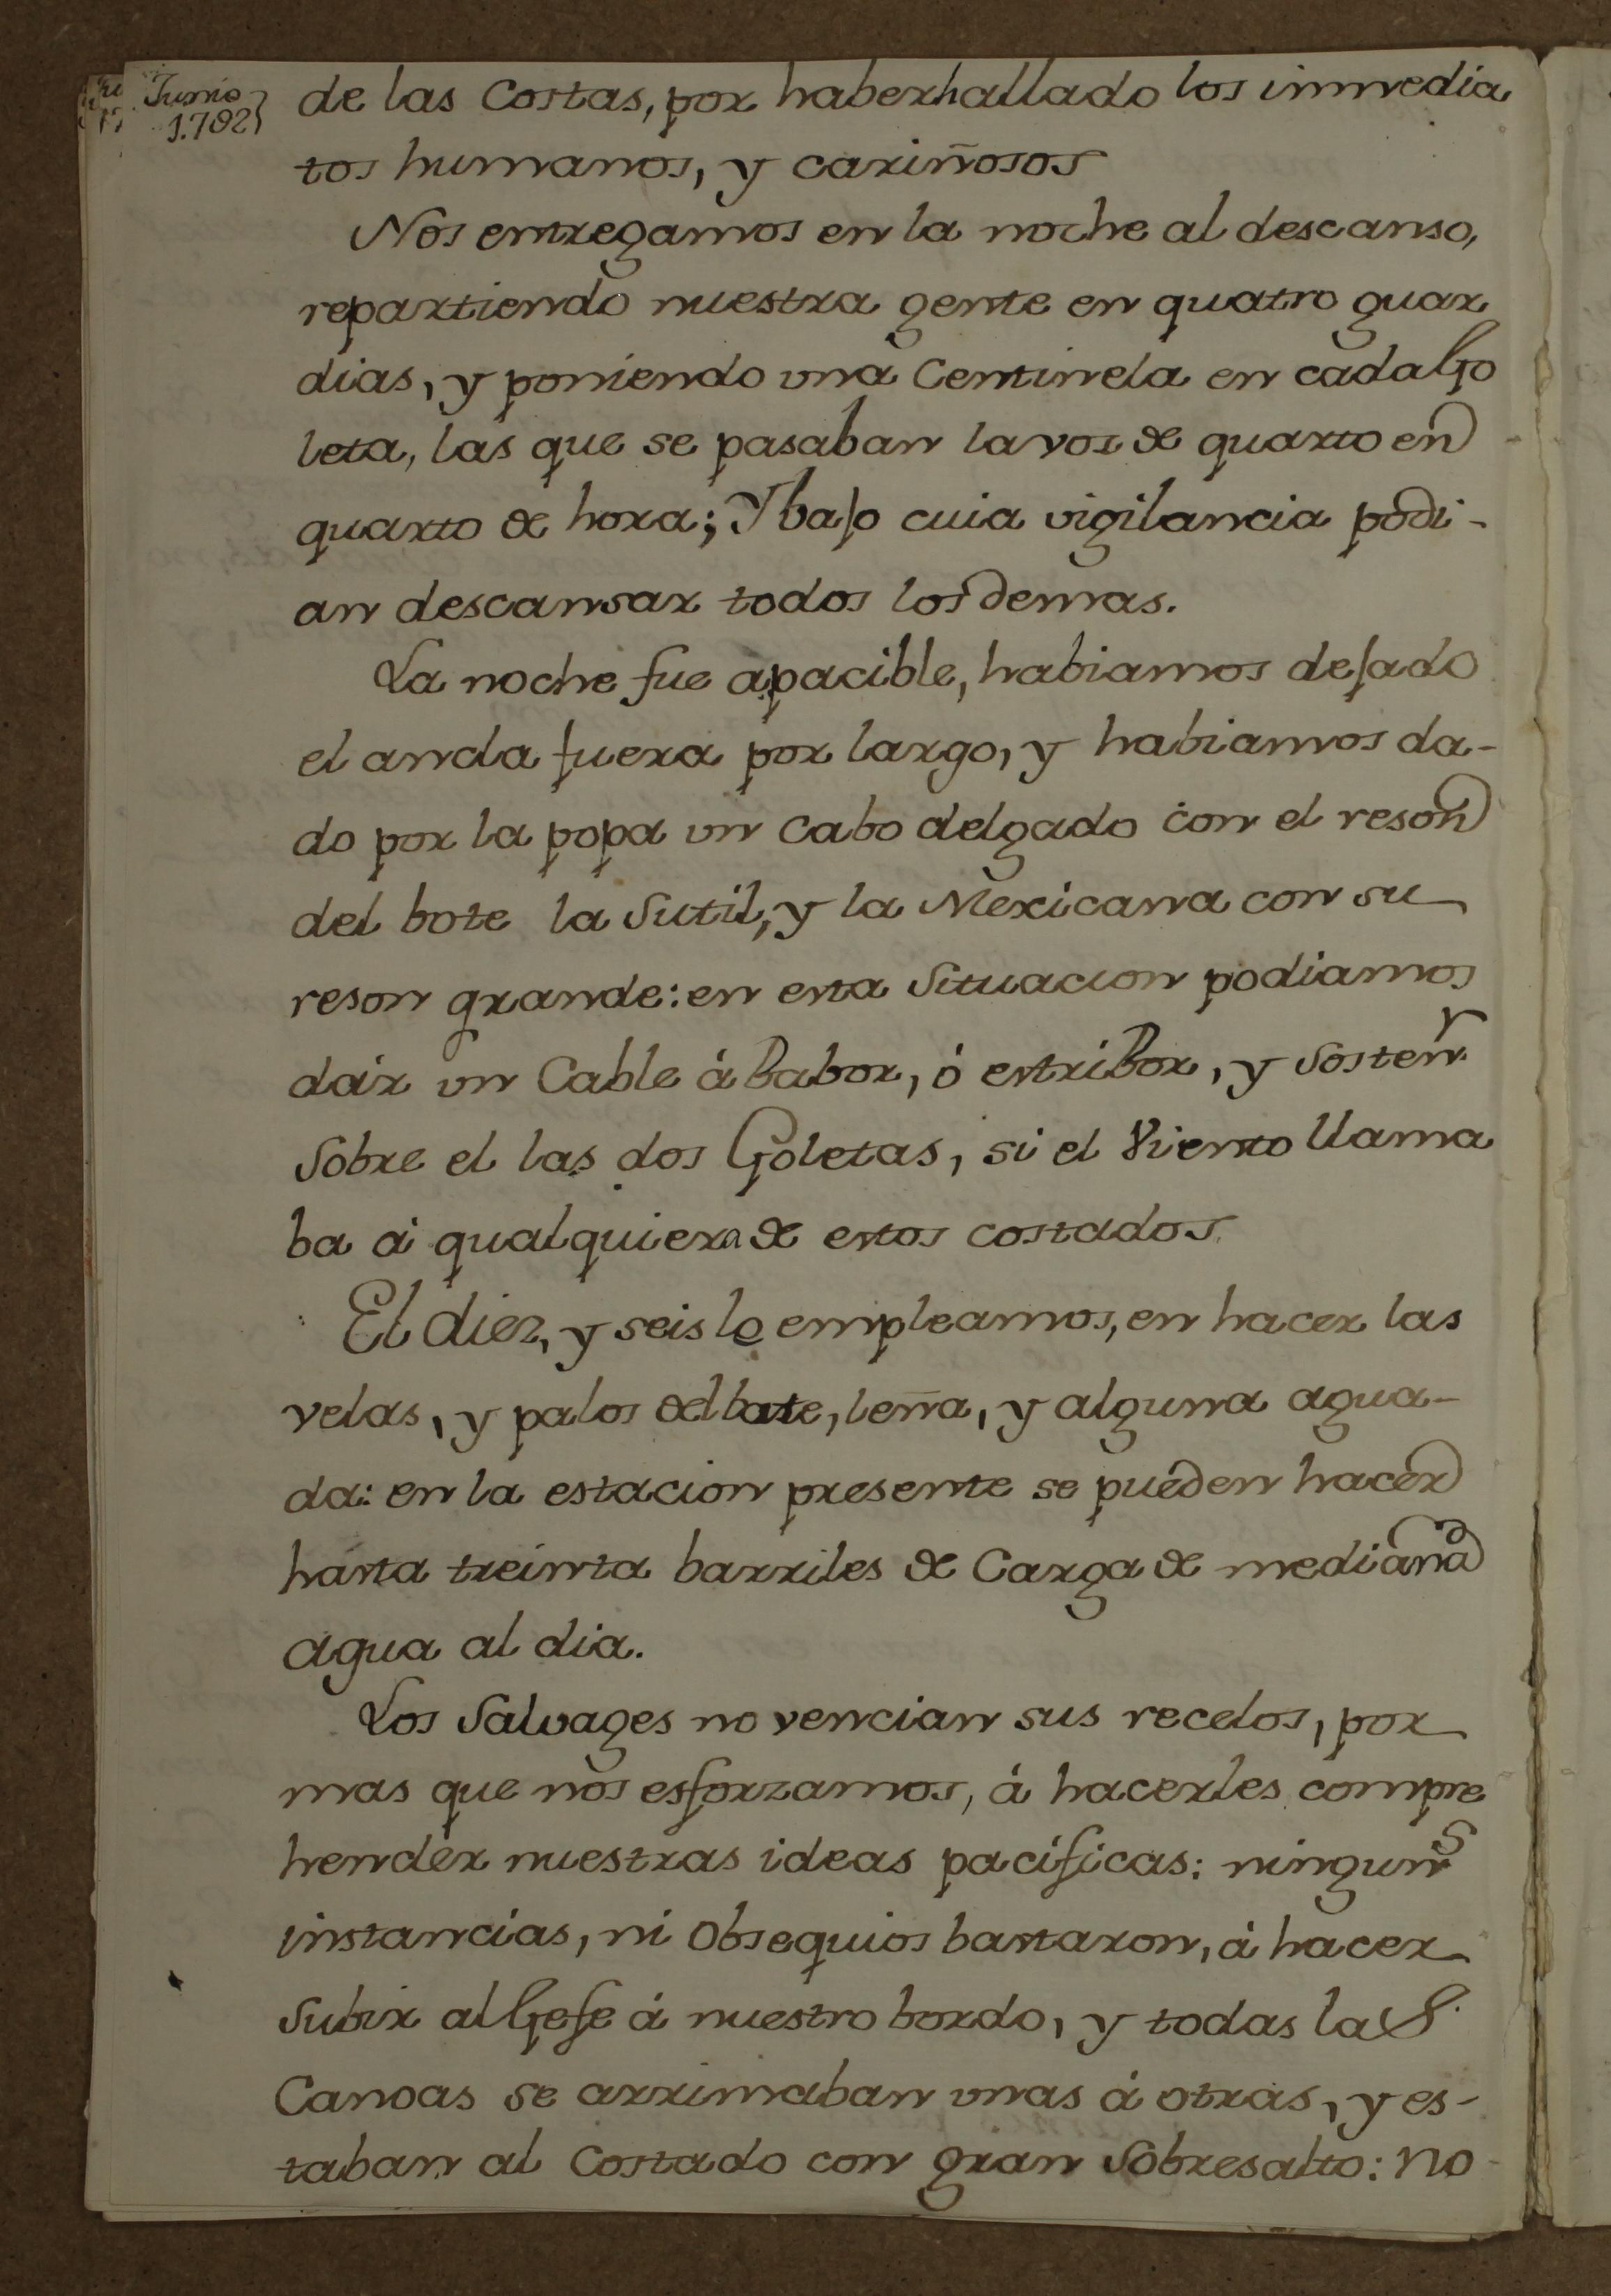 Junio
1.792
de las Costas, por haberhallado los inmedia
tos humanos, y cariñosos
Nos entregamos en la noche al descanso,
repartiendo nuestra gente en quatro guar
dias, y poniendo una Centinela en cada Go
leta, las que se pasaban la vos de quarto en
quarto de hora; Y bajo cuia vigilancia podi-
an descansar todos los demas.
La noche fue apacible, habiamos dejado
el ancla fuera por largo, y habiamos da-
do por la popa un Cabo delgado con el reson
del bote la Sutil, y la Mexicana con su
reson grande: en esta Situacion podiamos
dár un Cable á Babor, ó estribor, y Sostenr
Sobre el las dos Goletas, si el Viento llama
ba á qualquiera de estos costados.
El diez, y seis lo empleamos, en hacer las
velas, y palos del bote, leña, y alguna agua-
da: en la estacion presente se pueden hacer
hasta treinta barriles de Carga de mediana
agua al dia.
Los Salvages no vencian sus recelos, por
mas que nos esforzamos, á hacerles compre
hendér nuestras ideas pacificas:ninguns
instancias, ni Obsequios bastaron, á hacer
Subir al Gefe á nuestro bordo, y todas las
Canoas se arrimaban unas á otras, y es-
taban al Costado con gran Sobresalto: no